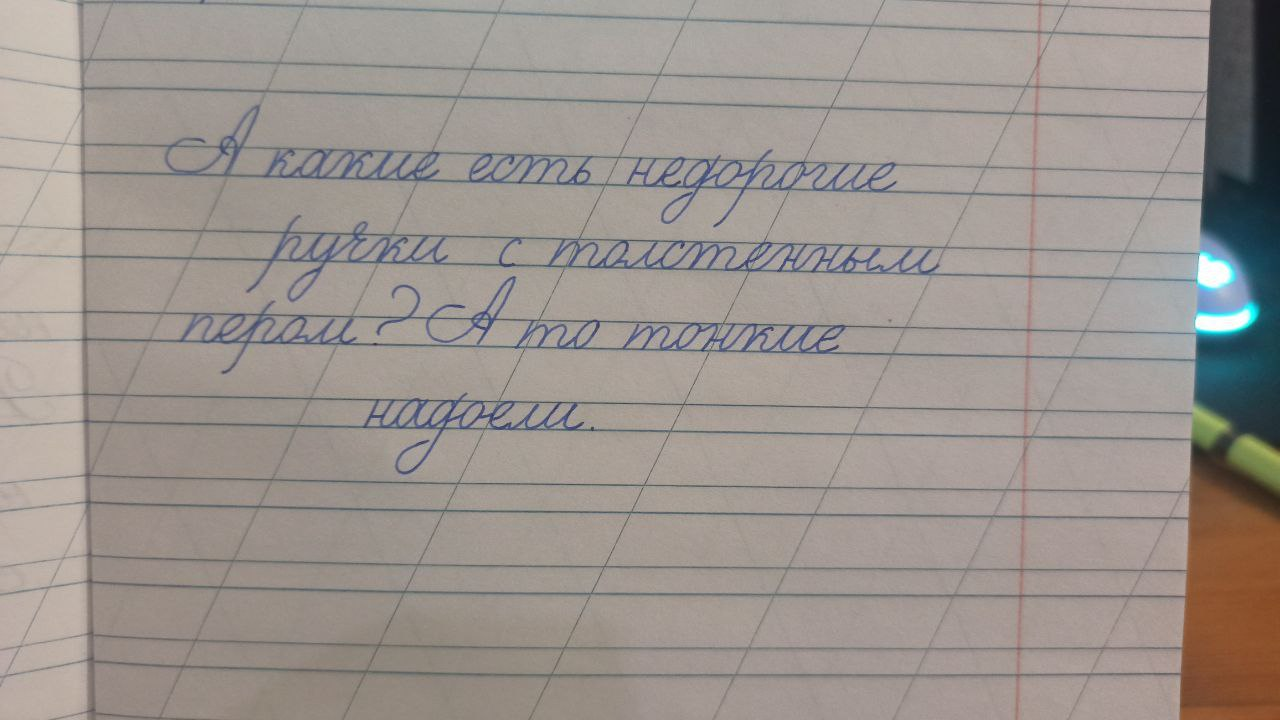 А какие есть недорогие
ручки с толстенным
пером? А то тонкие
надоели.